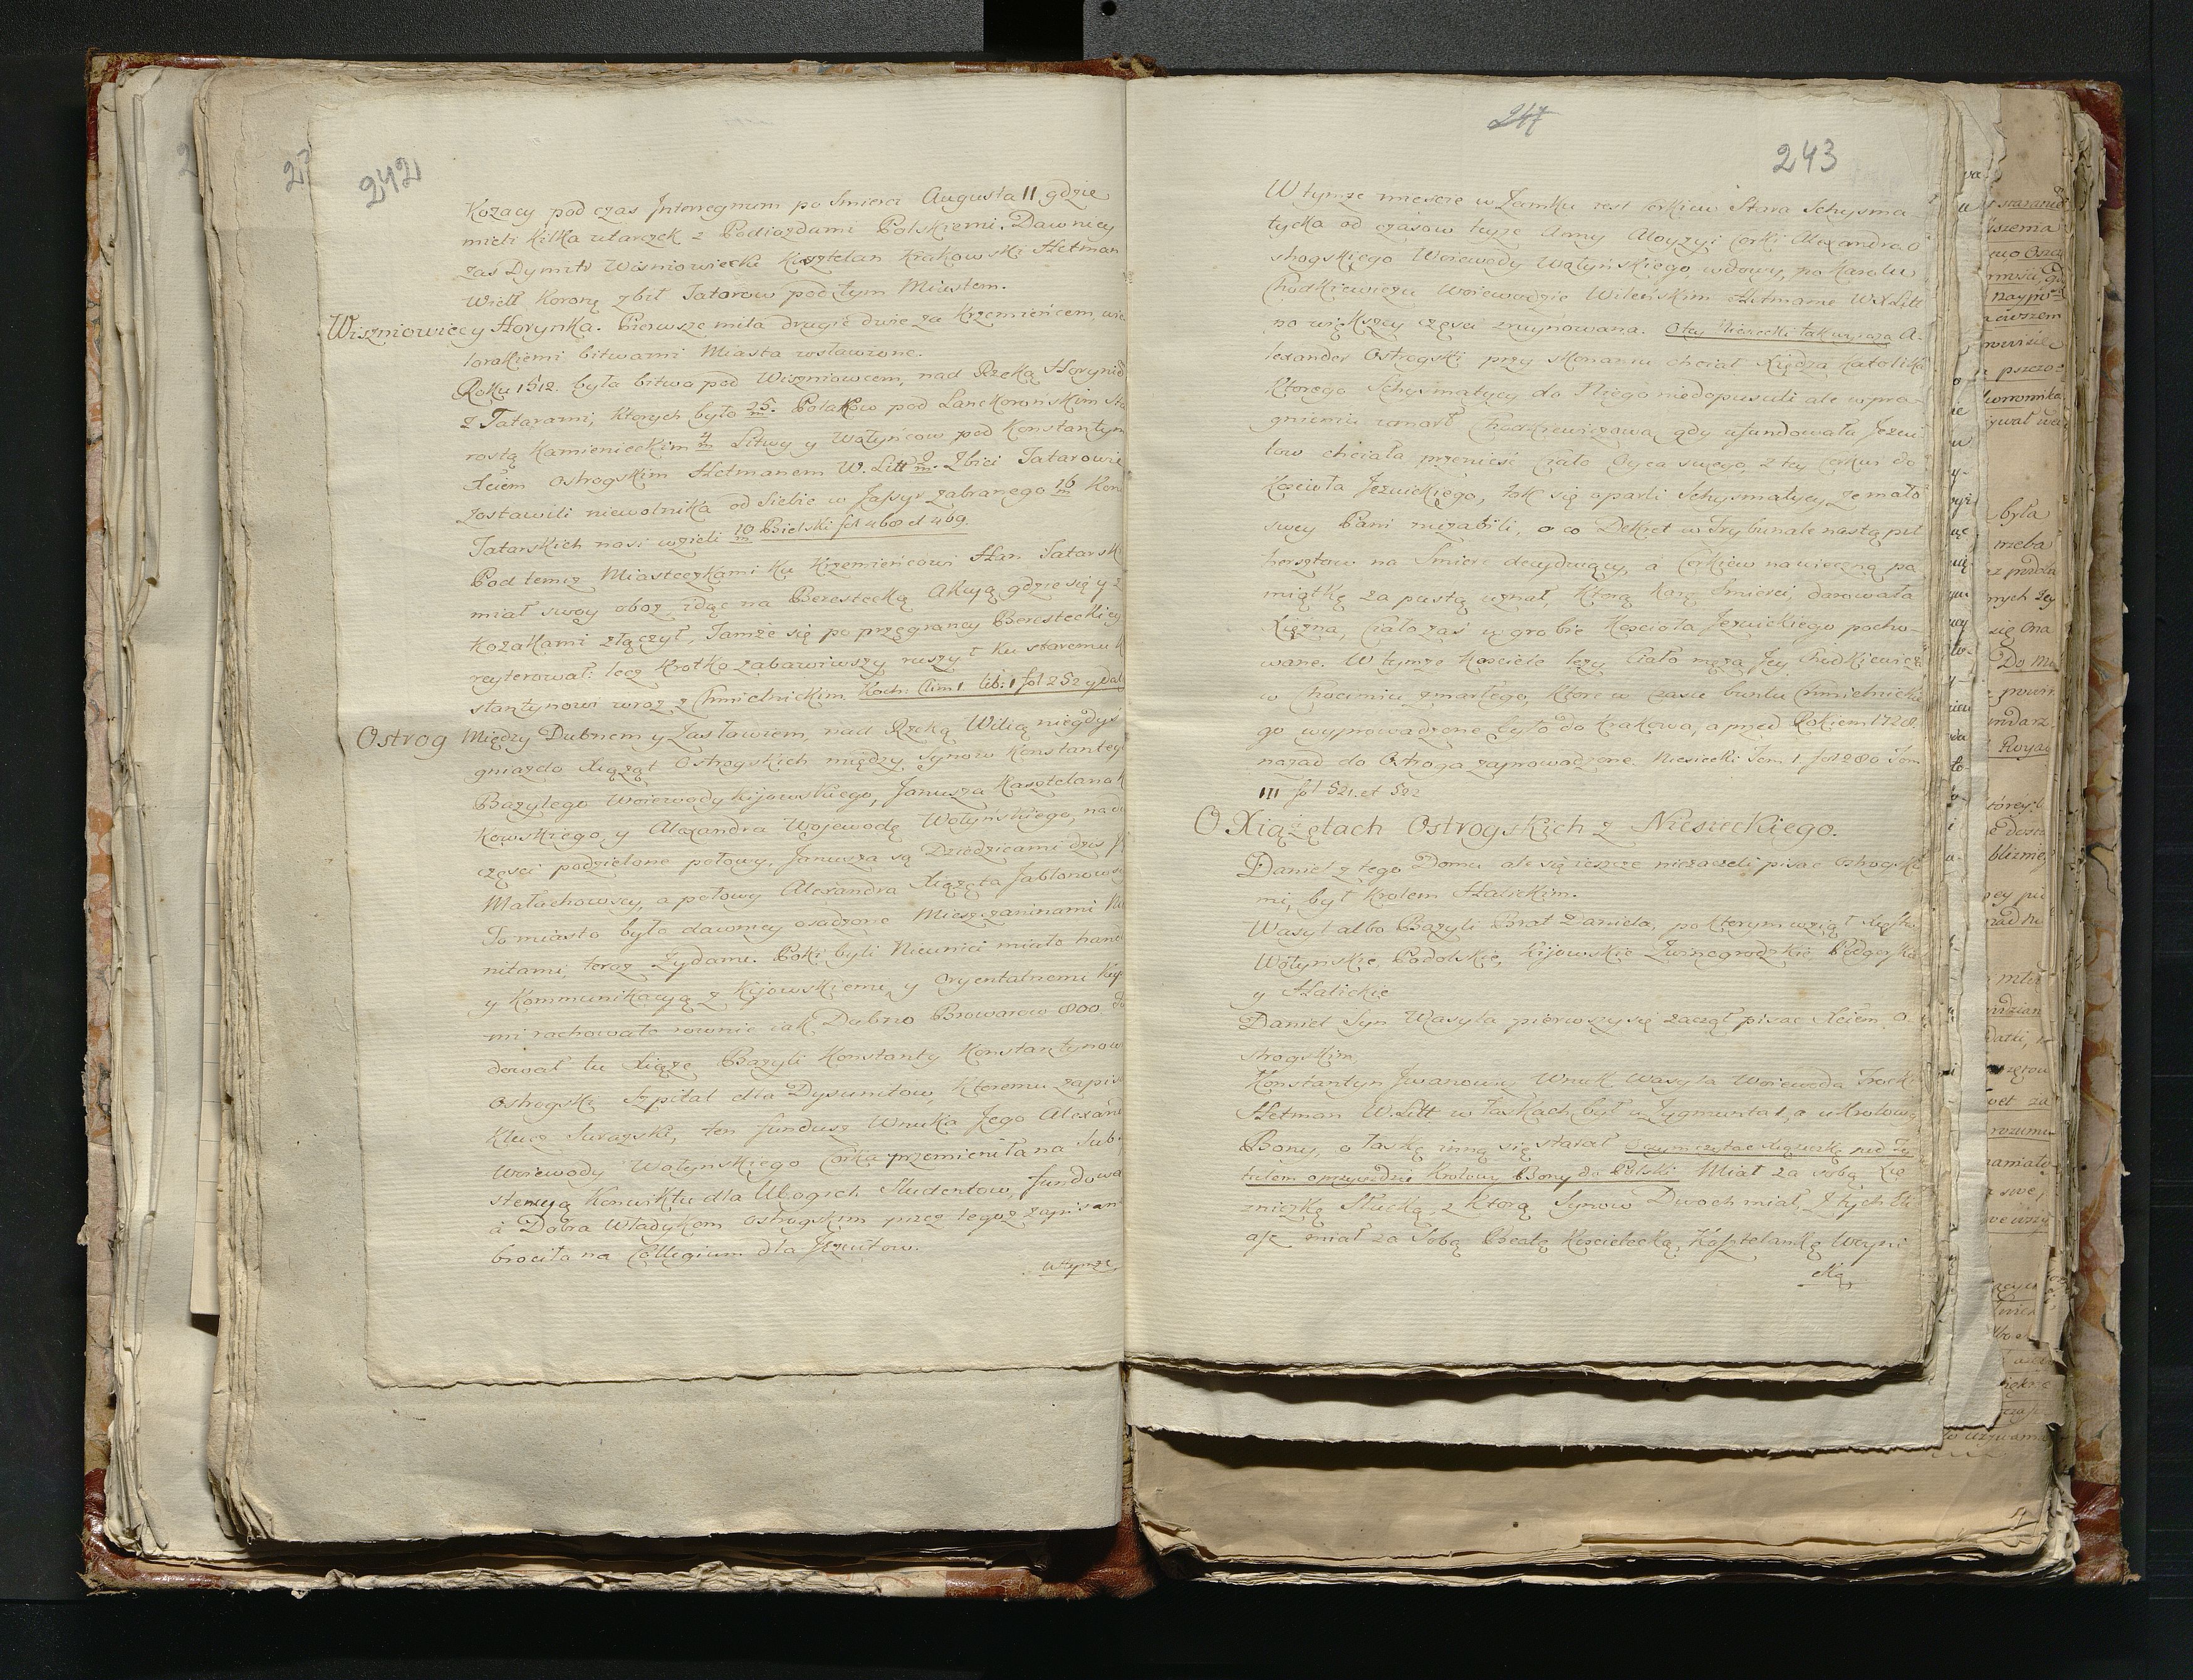 242
Kozacy pod czas Interregnum po Smierci Augusta II gdzie
mieli kilka utarczek z Podiazdami Polskiemi. Dawniey
zas Dymitr Wisniowiecki Kasztelan Krakowski Hetman
Wielł Koronę zbił Tatarow pod tym Miastem.
Wiszniowiecy Horynka. Pierwsze mila drugie dwie za Krzemieńcem, wie
lorakiemi bitwami Miasta wsławione.
Roku 1512. była bitwa pod Wiszniowcem, nad Rzeką Horynią
z Tatarami, ktorych było 25/m. Polakow pod Lanckoronskim Sta
rostą Kamienieckim 4/m Litwy y Wołyńcow pod Konstantym
Xciem Ostrogskim Hetmanem W. Litt /m. Zbici Tatarowie
zostawili niewolnika od Siebie w Jassyr zabranego 16/m Kon
Tatarskich nasi wzieli 10/m Bielski fol 468 et 469.
Pod temiz Miasteczkami ku Krzemieńcowi Han Tatarski
miał swoy oboz, idąc na Berestecką Akcyą, gdzie się y z
Kozakami złączył, Tamże się po przegraney Beresteckiey
reyterował: lecz krotko zabawiwszy ruszył ku staremu K
stantynowi wraz z Chmielnickim Koch: Clim 1 lib: 1 fol 252 y dal
Ostrog Między Dubnem y Zasławiem, nad Rzeką Wilią niegdyś
gniazdo Xiążąt Ostrogskich między, Synow Konstantego
Bazylego Woiewody Kijowskiego, Janusza Kasztelana K
kowskiego, y Alexandra Wojewodę Wołyńskiego, na dw
części podzielone połowy, Janusza są Dziedzicami dzis
Małachowscy, a połowy Alexandra Xiążęta Jabłonowscy
To miasto było dawniey osadzone Mieszczaninami Nie
nitami, teraz Zydami. Poki byli Nieunici miało hand
y Kommunikacyą z Kijowskiemi, y Oryentalnemi Kup
mi rachowało rownie iak Dubno Browarow 800. Fu
dował tu Xiąże Bazyli Konstanty Konstantynow
Ostrogski Szpital dla Dysunitow, ktoremu zapis
Klucz Suraski, ten fundusz Wnuka Jego Alexan
Woiewody Wołynskiego Corka przemieniła na Sub-
stencyą Konwiktu dla Ubogich Studentow, fundowa
a Dobra Władykom Ostrogskim przez tegoz zapisan
brociła na Collegium dla Jezuitow.
Wtymze
247
243
W tymże miescie w Zamku iest Cerkiew Stara Schysma
tycka od czasow teyże Anny Aloyzyi Corki Alexandra O
strogskiego Woiewody Wołyńskiego, wdowy, po Karolu
Chodkiewiczu Woiewodzie Wileńskim Hetmanie W. X Litt
po większey części zruynowana. O tey Niesiecki tak wyraza A-
lexander Ostrogski przy skonaniu chciał Xiędza Katolika
ktorego Schysmatycy do Niego niedopuscili ale w pra-
gnieniu umarł Chodkiewiczowa, gdy ufundowała Jezui
tow chciała przenieść Ciało Oyca swego, z tey Cerkwi do
Kościoła Jezuickiego, tak się oparli Schysmatycy, że mało
swey Pani niezabili, o co Dekret w Trybunale nastąpił
hersztow na Smierc decyduiący, a Cerkiew na wieczną pa
miątkę za pustą uznał, ktorą karę Smierci, darowała
Xiężna, Ciało zaś w grobie Kościoła Jezuickiego pocho-
wane. W tymze Kościele leży Ciało męża Jey Chodkiewicz
w Chocimiu zmarłego, ktore w czasie buntu Chmielnickie
go wyprowadzone było do Krakowa, a przed Rokiem 1728
nazad do Ostroga zaprowadzone. Niesiecki Tom 1. fol 280 Tom
III fol 521. et 522
O Xiążętach Ostrogskich z Niesieckiego.
Daniel z tego Domu ale się ieszcze niezaczeli pisac Ostrogski
mi, był Krolem Halickim.
Wasyl albo Bazyli Brat Daniela, po ktorym wziął Xięstwo
Wołynskie Podolskie, Kijowskie Zwinogrodzkie Podgorskie
y Halickie
Daniel Syn Wasyla pierwszy się zaczął pisac Xciem O-
strogskim.
Konstantyn Jwanowicz Wnuk Wasyla Woiewoda Trocki
Hetman W. Litt w łaskach był u Zygmunta 1, a u Krolowy
Bony, o łaskę inną się starał. O czym czytac xiązeczkę pod Ty-
tułem o przyiezdzie Krolowy Bony do Polski Miał za sobą Xię
zniczkę Słucką, z ktorą Synow Dwoch miał, Z tych Eli
asz miał za Sobą Beatę Koscielecką, Kasztelankę Woyni
cką,